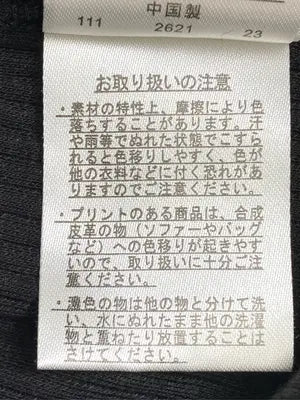 中国製
111 2621 / 23
お取り扱いの注意
・素材の特性上、摩擦により色
落ちすることがあります。汗
や雨等でぬれた状態でこすら
れると色移りしやすく、色が
他の衣料などに付く恐れがあ
りますのでご注意ください。
・プリントのある商品は、合成
皮革の物(ソファーやバッグ
など)への色移りが起きやす
いので、取り扱いに十分ご注
意ください。
・濃色の物は他の物と分けて洗
い、水にぬれたまま他の洗濯
物と重ねたり放置することは
さけてください。